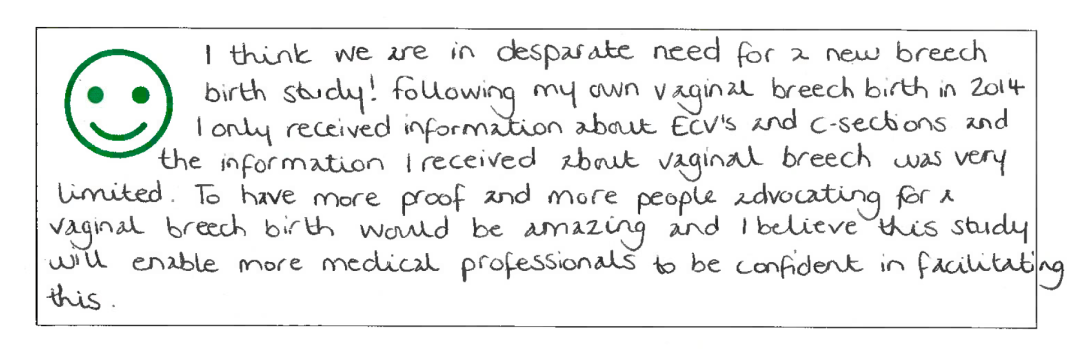 I think we are in desparate need for a new breech
birth study! following my own vaginal breech birth in 2014
I only received information about ECV's and C-sections and
the information I received about vaginal breech was very
limited. To have more proof and more people advocating for a
vaginal breech birth would be amazing and I believe this study
will enable more medical professionals to be confident in facilitating
this.